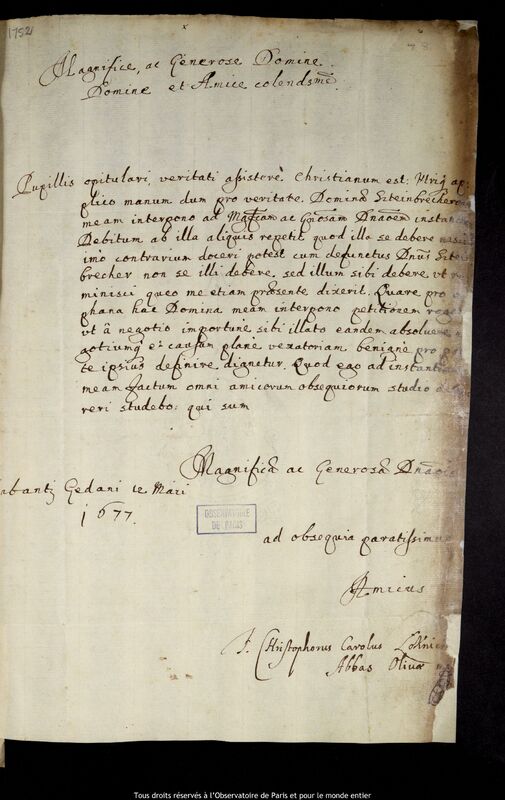 1752
Magnifice, ac Generose Domine
Domine et Amice colendsme
Pupillis opitulari, veritati assistere Christianum est: Utriq ap
plico manum dum pro veritate. Domina Szteinbrecher
meam interpono ad Magcam ac Gnosam Dnaoem instan
Debitum ab illa aliquis repetit quod illa se debere
imo contrarium doceri potest cum defunctus Dnus Sztei
brecher non se illi debere, sed illum sibi debere vt
minisci queo me etiam praesente dixeril. Quare pro
phana hac Domina meam interpono petitionem
vt a negotio importune sibi illato eandem absoluere
gotiumq et causam plane vexatoriam benigne pro
te ipsius definire dignetur. Quod ego ad instantiam
meam factum omni amicorum obsequiorum studio
reri studebo: qui sum
Magnificae ac Generosae
Gedani 12 Maii
1677.
OBSERVATOIRE
DE PARIS
ad obsequia paratissimus
Amicus
F. Christophorus Carolus
Abbas Olivae
Tous droits réservés à l'Observatoire de Paris et pour le monde entier